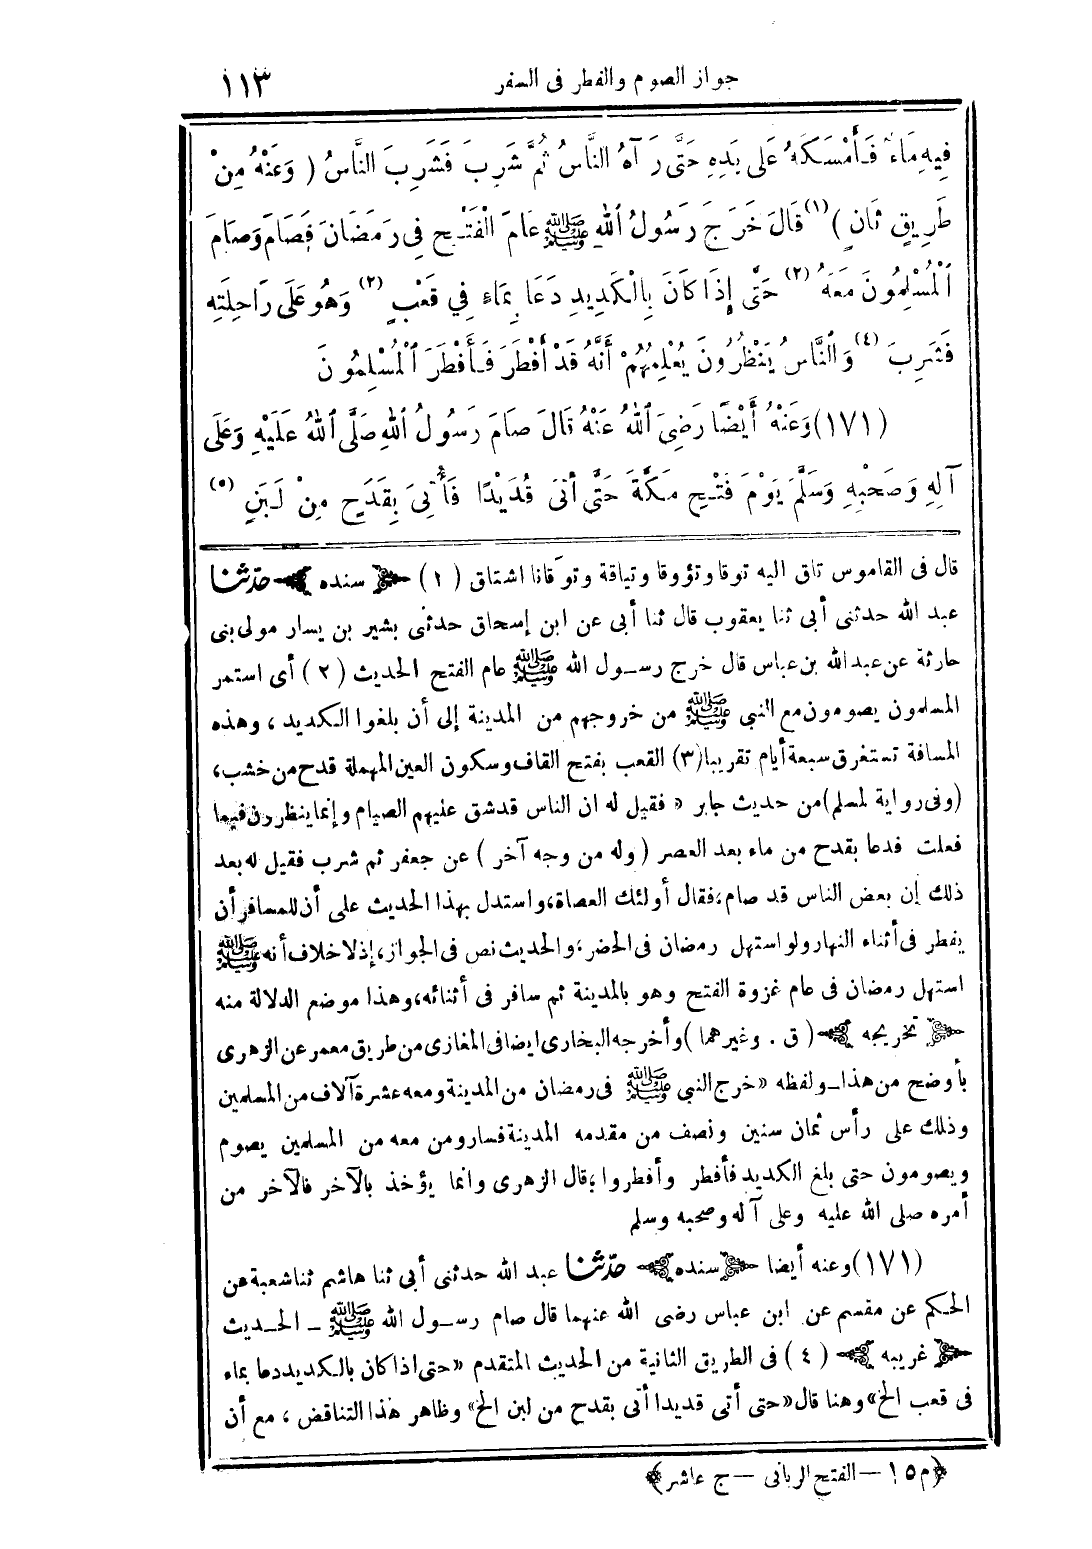 جواز الصوم والفطر فى السفر ١١٣
فِيهِ مَاءٌ فَأَمْسَكَهُ عَلَى يَدِهِ حَتَّى رَآهُ النَّاسُ ثُمَّ شَرِبَ فَشَرِبَ النَّاسُ ( وَعَنْهُ مِنْ
طَرِيقٍ ثَانٍ ) (١) قَالَ خَرَجَ رَسُولُ اللهِ ﷺ عَامَ الْفَتْحِ فِى رَمَضَانَ فَصَامَ وَصَامَ
الْمُسْلِمُونَ مَعَهُ (٢) حَتَّى إِذَا كَانَ بِالْكَدِيدِ دَعَا بِمَاءٍ فِي قَعْبٍ (٣) وَهُوَ عَلَى رَاحِلَتِهِ
فَشَرِبَ (٤) وَالنَّاسُ يَنْظُرُونَ يُعْلِمُهُمْ أَنَّهُ قَدْ أَفْطَرَ فَأَفْطَرَ الْمُسْلِمُونَ
(١٧١) وَعَنْهُ أَيْضًا رَضِىَ اللهُ عَنْهُ قَالَ صَامَ رَسُولُ اللهِ صَلَّى اللهُ عَلَيْهِ وَعَلَى
آلِهِ وَصَحْبِهِ وَسَلَّمَ يَوْمَ فَتْحِ مَكَّةَ حَتَّى أَتَى قُدَيْدًا فَأُتِىَ بِقَدَحٍ مِنْ لَبَنٍ (٥)
قال فى القاموس تاق اليه توقا وتؤوقا وتياقة وتوَقانا اشتاق (١) ﴿ سنده ﴾ حدّثنا
عبد الله حدثنى أبى ثنا يعقوب قال ثنا أبى عن ابن إسحاق حدثنى بشير بن يسار مولى بنى
حارثة عن عبد الله بن عباس قال خرج رسول الله ﷺ عام الفتح الحديث (٢) أى استمر
المسلمون يصومون مع النبى ﷺ من خروجهم من المدينة إلى أن بلغوا الكديد ، وهذه
المسافة تستغرق سبعة أيام تقريبا (٣) القعب بفتح القاف وسكون العين المهملة قدح من خشب،
(وفى رواية لمسلم) من حديث جابر « فقيل له ان الناس قد شق عليهم الصيام وإنما ينظرون فيما
فعلت فدعا بقدح من ماء بعد العصر ( وله من وجه آخر ) عن جعفر ثم شرب فقيل له بعد
ذلك إن بعض الناس قد صام، فقال أولئك العصاة، واستدل بهذا الحديث على أن للمسافر أن
يفطر فى أثناء النهار ولو استهل رمضان فى الحضر، والحديث نص فى الجواز، إذ لا خلاف أنه ﷺ
استهل رمضان فى عام غزوة الفتح وهو بالمدينة ثم سافر فى أثنائه، وهذا موضع الدلالة منه
﴿ تخريجه ﴾ ( ق . وغيرهما ) وأخرجه البخارى ايضا فى المغازى من طريق معمر عن الزهرى
بأوضح من هذا ــ ولفظه « خرج النبي ﷺ فى رمضان من المدينة ومعه عشرة آلاف من المسلمين
وذلك على رأس ثمان سنين ونصف من مقدمه المدينة فسار ومن معه من المسلمين يصوم
ويصومون حتى بلغ الكديد فأفطر وأفطروا ؛ قال الزهرى وانما يؤخذ بالآخر فالآخر من
أمره صلى الله عليه وعلى آله وصحبه وسلم
(١٧١) وعنه أيضا ﴿ سنده ﴾ حدّثنا عبد الله حدثنى أبى ثنا هاشم ثنا شعبة عن
الحكم عن مقسم عن ابن عباس رضى الله عنهما قال صام رسول الله ﷺ ــ الحديث
﴿ غريبه ﴾ (٤) فى الطريق الثانية من الحديث المتقدم « حتى اذا كان بالكديد دعا بماء
فى قعب الخ » وهنا قال « حتى أتى قديدا أتى بقدح من لبن الخ » وظاهر هذا التناقض ، مع أن
﴿ م ١٥ — الفتح الربانى — ج عاشر ﴾